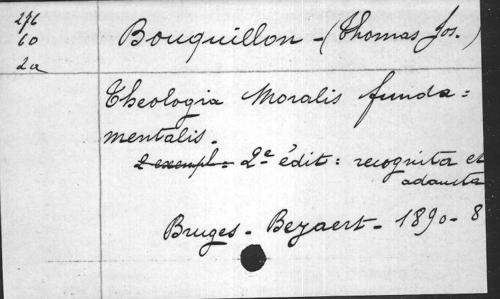 276
60
2a
Bouquillon - (Thomas Jos.)
Theologia Moralis funda=
mentalis.
2 exempl. = 2e édit: recognita et
adaucta
Bruges - Beyaert - 1890 - 8